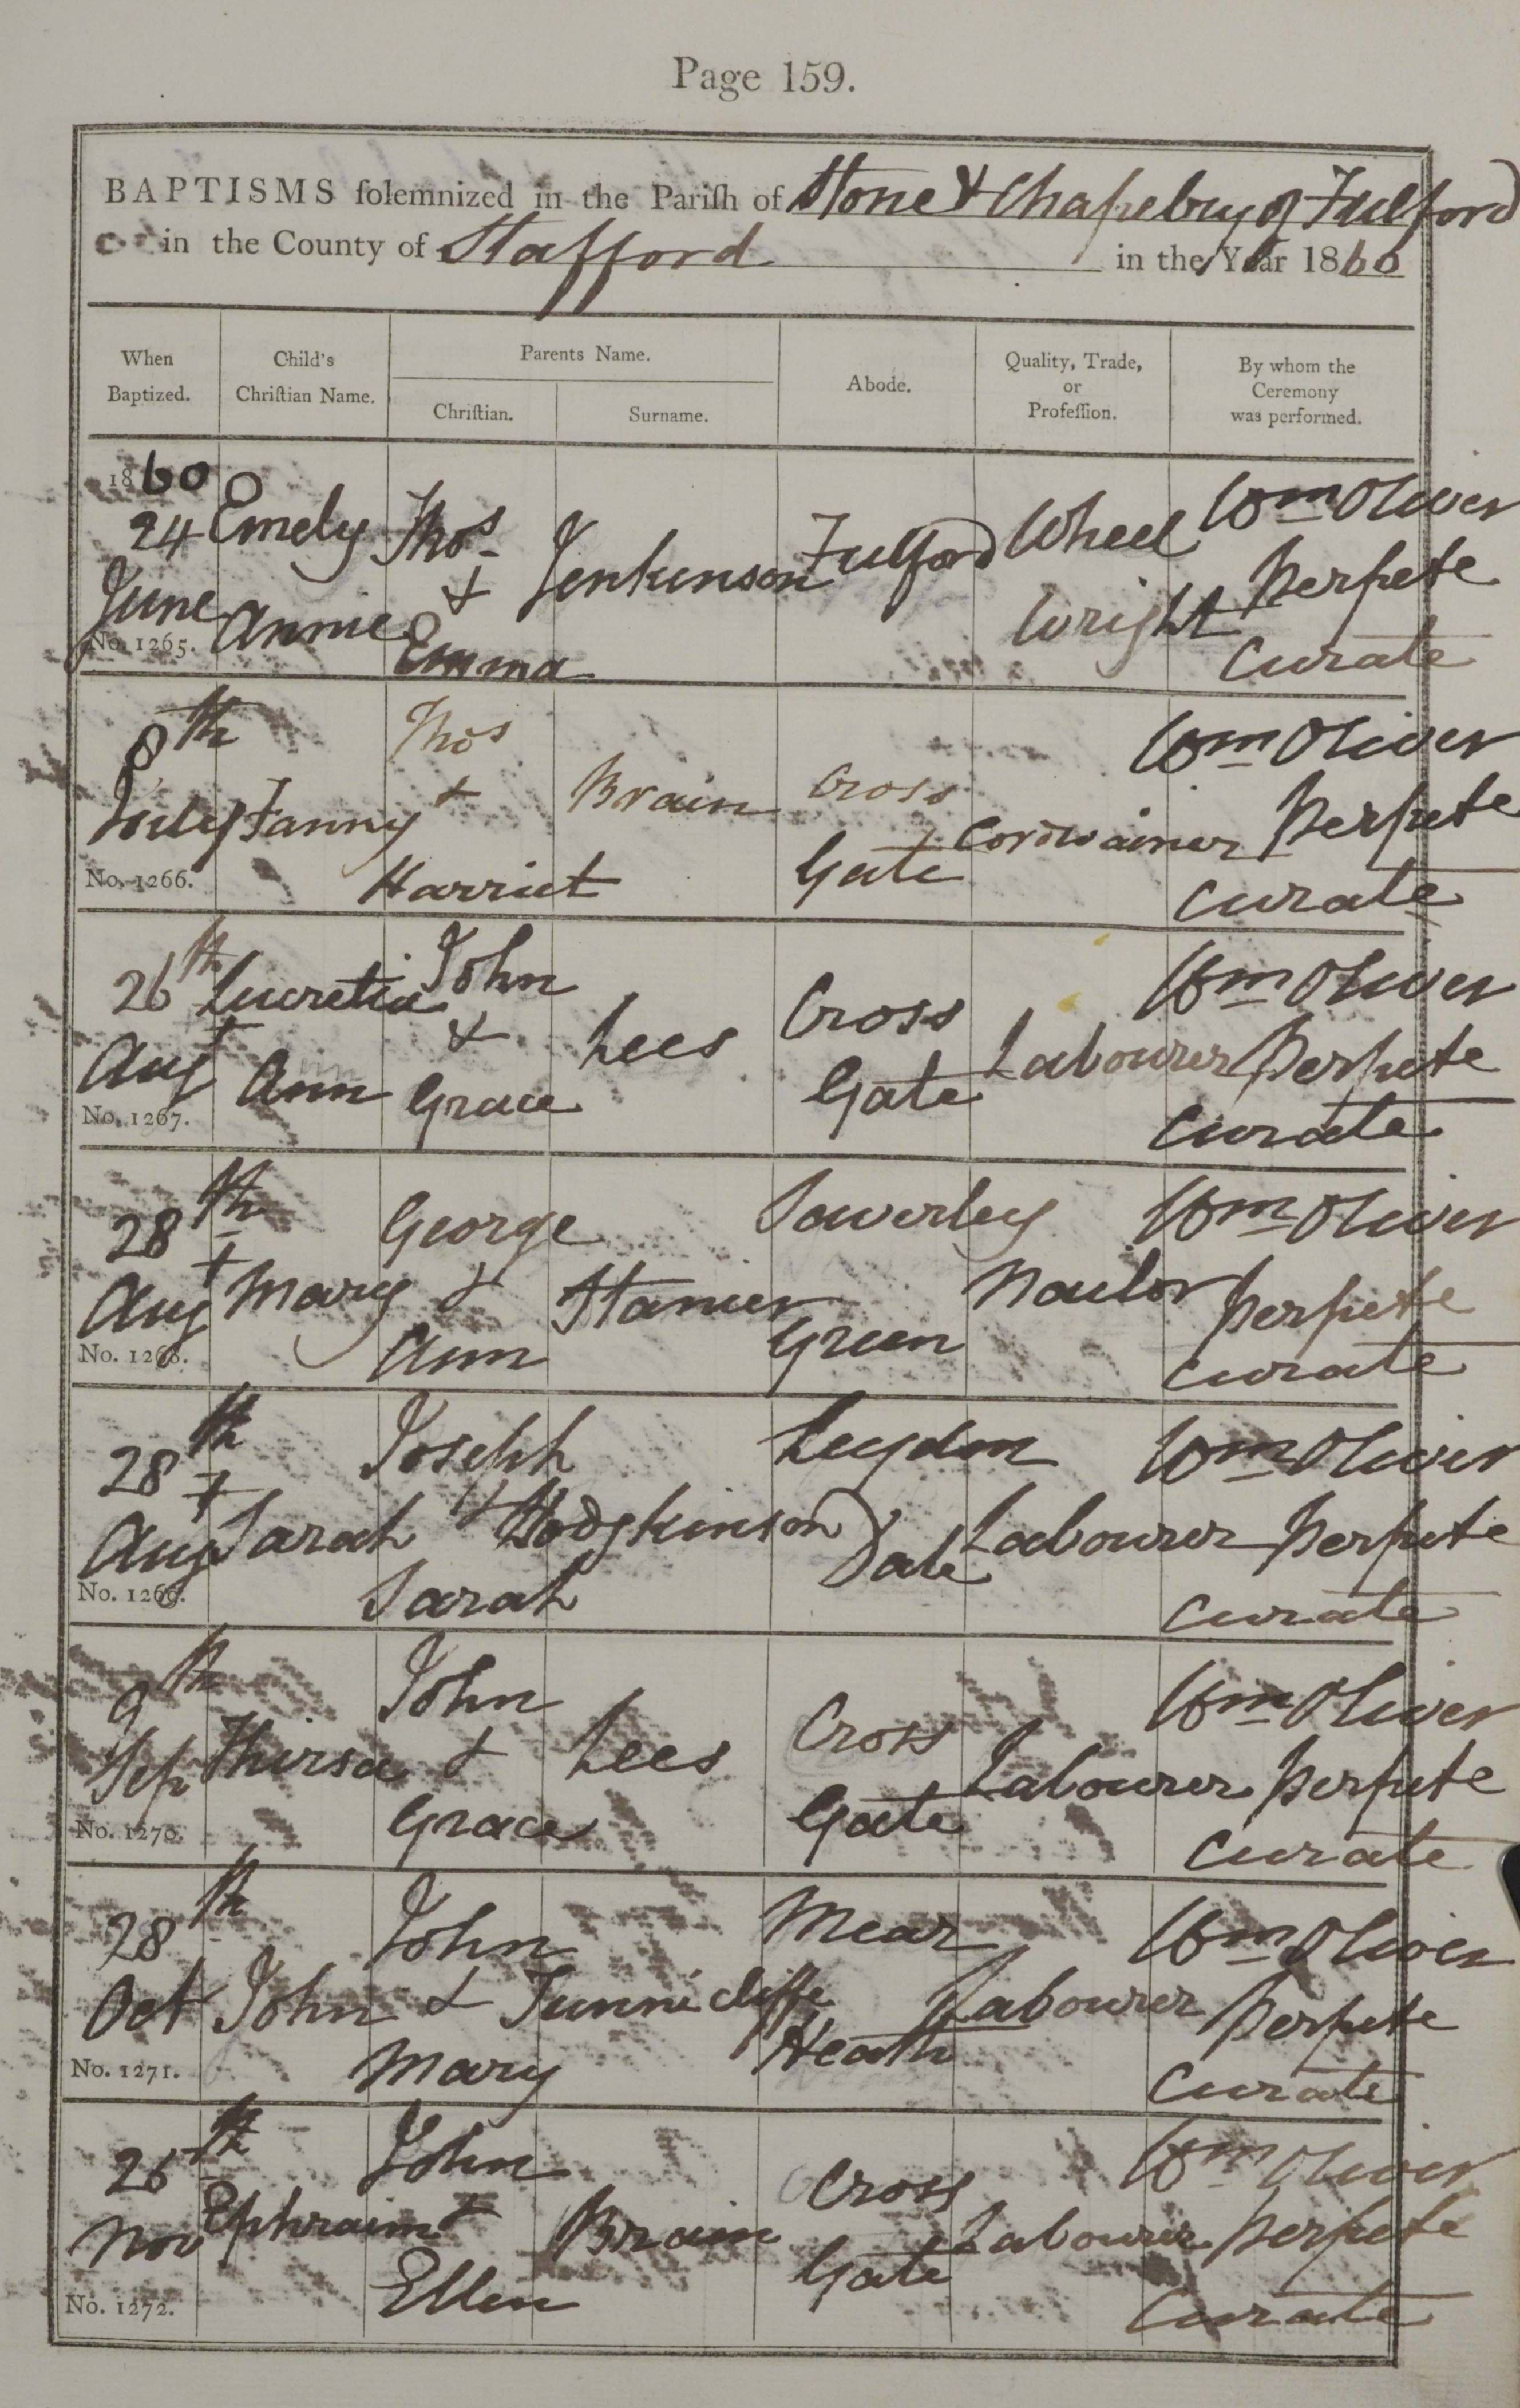 Page 159.
BAPTISMS solemnized in the Parish of Stone & Chapelry of Fulford
in the County of Stafford in the Year 1860
When Baptized.
Child's Christian Name.
Parents Name.
Christian.
Surname.
Abode.
Quality, Trade, or Profession.
By whom the Ceremony was performed.
1860
24 June
No. 1265.
Emely Annie
Thos. & Emma
Jenkinson
Fulford
Wheel Wright
Wm Oliver Perpete Curate
8th July
No. 1266.
Fanny
Thos & Harriet
Brain
Cross Gate
Cordwainer
Wm Oliver Perpete Curate
26th Augt
No. 1267.
Lucretia Ann
John & Grace
Lees
Cross Gate
Labourer
Wm Oliver Perpete Curate
28th Augt
No. 1268.
Mary
George & Ann
Stanier
Saverley Green
Nailor
Wm Oliver Perpete Curate
28th Augt
No. 1269.
Sarah
Joseph & Sarah
Hodgkinson
Leydon Dale
Labourer
Wm Oliver Perpete Curate
9th Sep
No. 1270.
Thirsa
John & Grace
Lees
Cross Gate
Labourer
Wm Oliver Perpete Curate
28th Oct
No. 1271.
John
John & Mary
Tunnicliffe
Mear Heath
Labourer
Wm Oliver Perpete Curate
Nov
No. 1272.
Ephraim
John & Ellen
Brain
Cross Gate
Labourer
Wm Oliver Perpete Curate